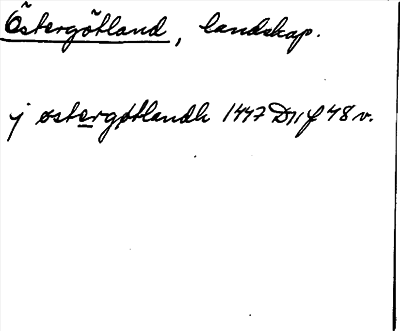 Östergötland, landskap.
j østergøtlandh 1447 D11 f 48 v.